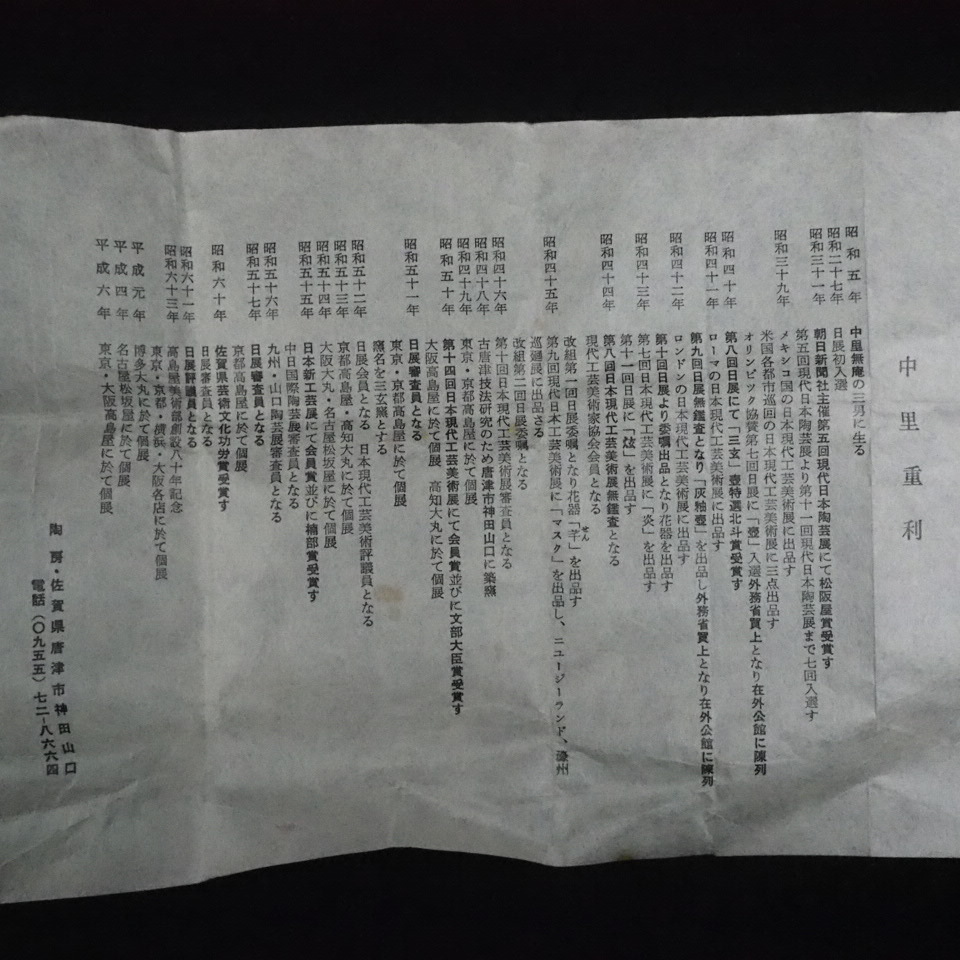 中里重利
昭和五年 中里無庵の三男に生る
昭和二十七年 日展初入選
昭和三十一年 朝日新聞社主催第五回現代日本陶芸展にて松阪屋賞受賞す
第五回現代日本陶芸展より第十一回現代日本陶芸展まで七回入選す
メキシコ国の日本現代工芸美術展に出品す
昭和三十九年 米国各都市巡回の日本現代工芸美術展に三点出品す
オリンピック協賛第七回日展に「壺」入選外務省買上となり在外公館に陳列
昭和四十年 第八回日展にて「三玄」壺特選北斗賞受賞す
昭和四十一年 ローマの日本現代工芸美術展に出品す
第九回日展無鑑査となり「灰釉壺」を出品し外務省買上となり在外公館に陳列
昭和四十二年 ロンドンの日本現代工芸美術展に出品す
第十回日展より委嘱出品となり花器を出品す
昭和四十三年 第七回日本現代工芸美術展に「炎」を出品す
第十一回日展に「炫」を出品す
昭和四十四年 第八回日本現代工芸美術展無鑑査となる
現代工芸美術家協会会員となる
改組第一回日展委嘱となり花器「芊」を出品す
せん
昭和四十五年 第九回現代日本工芸美術展に「マスク」を出品し、ニュージーランド、濠州
巡廻展に出品さる
改組第二回日展委嘱となる
昭和四十六年 第十回日本現代工芸美術展審査員となる
昭和四十八年 古唐津技法研究のため唐津市神田山口に築窯
昭和四十九年 東京・京都高島屋に於て個展
昭和五十年 第十四回日本現代工芸美術展にて会員賞並びに文部大臣賞受賞す
大阪高島屋に於て個展 高知大丸に於て個展
昭和五十一年 日展審査員となる
東京・京都高島屋に於て個展
窯名を三玄窯とする
昭和五十二年 日展会員となる 日本現代工芸美術評議員となる
昭和五十三年 京都高島屋・高知大丸に於て個展
昭和五十四年 大阪大丸・名古屋松坂屋に於て個展
昭和五十五年 日本新工芸展にて会員賞並びに楠部賞受賞す
中日国際陶芸展審査員となる
昭和五十六年 九州・山口陶芸展審査員となる
昭和五十七年 日展審査員となる
京都高島屋に於て個展
昭和六十年 佐賀県芸術文化功労賞受賞す
日展審査員となる
昭和六十一年 日展評議員となる
昭和六十三年 高島屋美術部創設八十年記念
東京・京都・横浜・大阪各店に於て個展
平成元年 博多大丸に於て個展
平成四年 名古屋松坂屋に於て個展
平成六年 東京・大阪高島屋に於て個展
陶房・佐賀県唐津市神田山口
電話(〇九五五)七二-八六六四